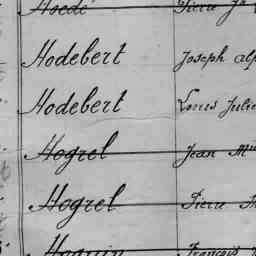 Hoedé Pierre J
Hodebert Joseph Alp
Hodebert Louis Julie
Hogrel Jean M
Hogrel Pierre M
Hoguin François